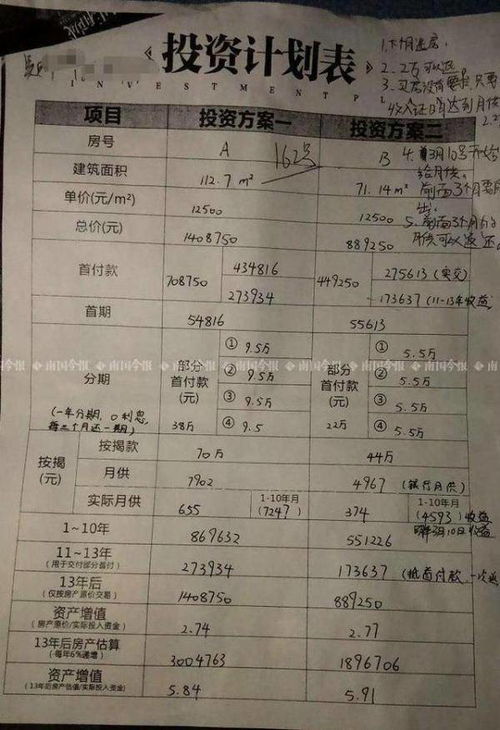 《投资计划表
INVESTMENT P
1.
2. 2万可以退
3. 买房没有要求,只要
收入证日月达到月供
项目 投资方案一 投资方案二
房号 A 162号 B
4. 3月10号开始
给月供。
建筑面积 112.7 m² 71.14 m² 前面3个月要
单价(元/m²) 12500 12500
5. 前面3个月的
总价(元) 1408750 889250 月供可以返还
首付款 708750 434816 273934 449250 275613 (实交) 173637 (11-13年收益)
首期 54816 55613
南国今报 南国今报 南国今报
分期 部分首付款(元) ① 9.5万 ② 9.5万 ③ 9.5万 ④ 9.5 38万 部分首付款(元) ① 5.5万 ② 5.5万 ③ 5.5万 ④ 5.5万 22万
(一年分期,0利息,
每三个月还一期)
按揭(元) 按揭款 70万 44万
月供 7902 4967 (银行月供)
实际月供 655 1-10年月 (7247) 374 1-10年月 (4593) 收益
1~10年 869632 551226 3月10日收益
11~13年 (用于交付部分首付) 273934 173637 (抵首付款 一次
13年后 (仅按房产原价交易) 1408750 889250
资产增值 (房产原价/实际投入资金) 2.74 2.77
13年后房产估算 (每年6%递增) 3004763 1896706
资产增值 (13年后房产估值/实际投入资金) 5.84 5.91